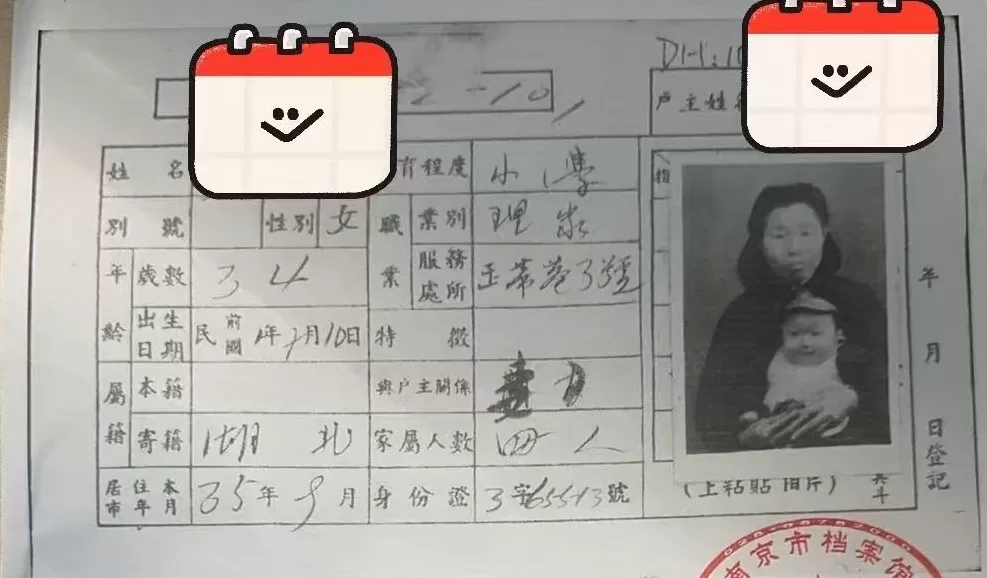 DH:10
戶主姓名
姓名
育程度 小學
別號 性別 女 職業 業別 理家
年齡 歲數 34 服務處所
出生日期 民前國 年 月10日 特徵
屬籍 本籍 與戶主關係
寄籍 湖北 家屬人數 四人
居住本市年月 35年9月 身份證 3字65513號
指
(上粘貼相片)
年 月 日登記
025-86782000
南京市档案馆